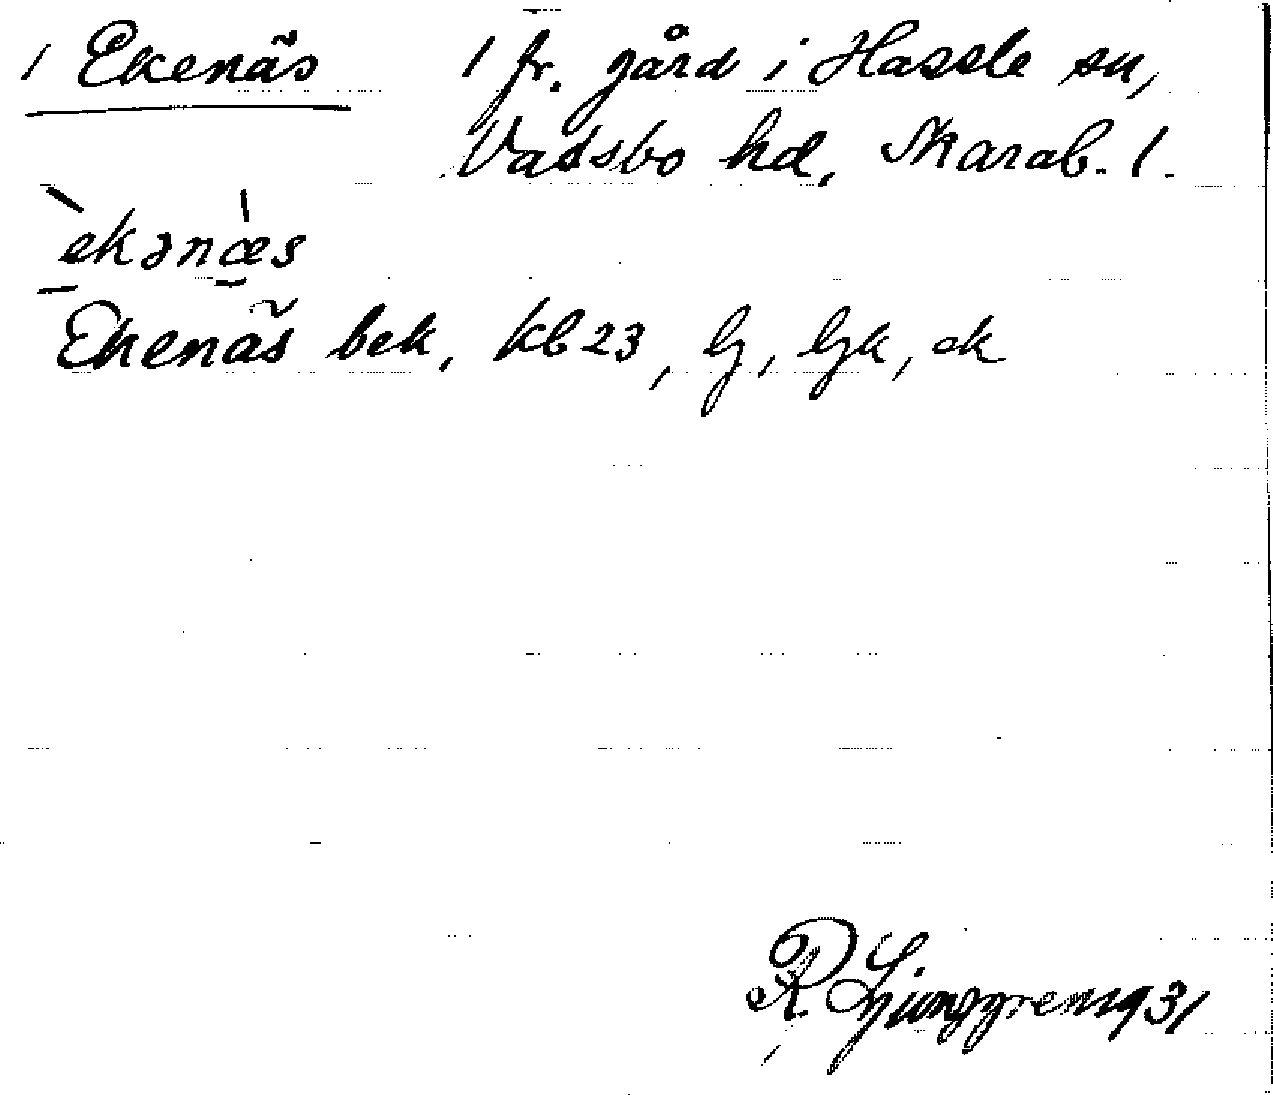 / Ekenäs 1 fr. gård i Hassle sn,
Vadsbo hd, Skarab. l.
ekənæs
Ekenäs bek, kb 23, lj, ljk, ek
R Ljunggren 1931